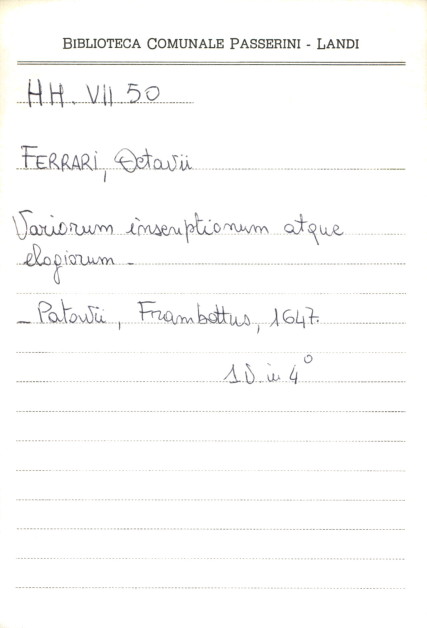 BIBLIOTECA COMUNALE PASSERINI - LANDI
HH. VII 50
FERRARI, Octavii
Variorum inscriptionum atque
elogiorum -
- Patavii, Frambottus, 1647.
1 V. in 4°